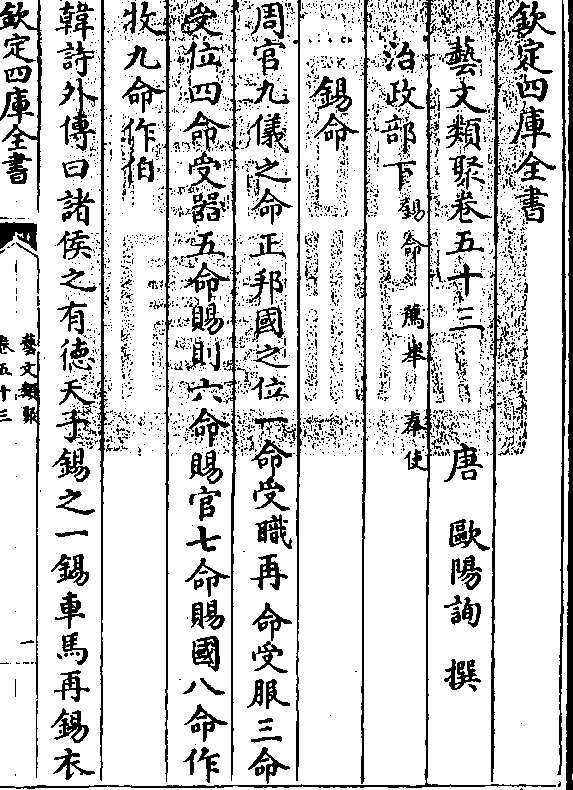 欽定四庫全書
藝文類聚卷五十三　唐　歐陽詢　撰
治政部下　錫命　薦舉　奉使
錫命
周官九儀之命正邦國之位一命受職再命受服三命
受位四命受器五命賜則六命賜官七命賜國八命作
牧九命作伯
韓詩外傳曰諸侯之有徳天子錫之一錫車馬再錫衣
欽定四庫全書
藝文類聚
卷五十三
一